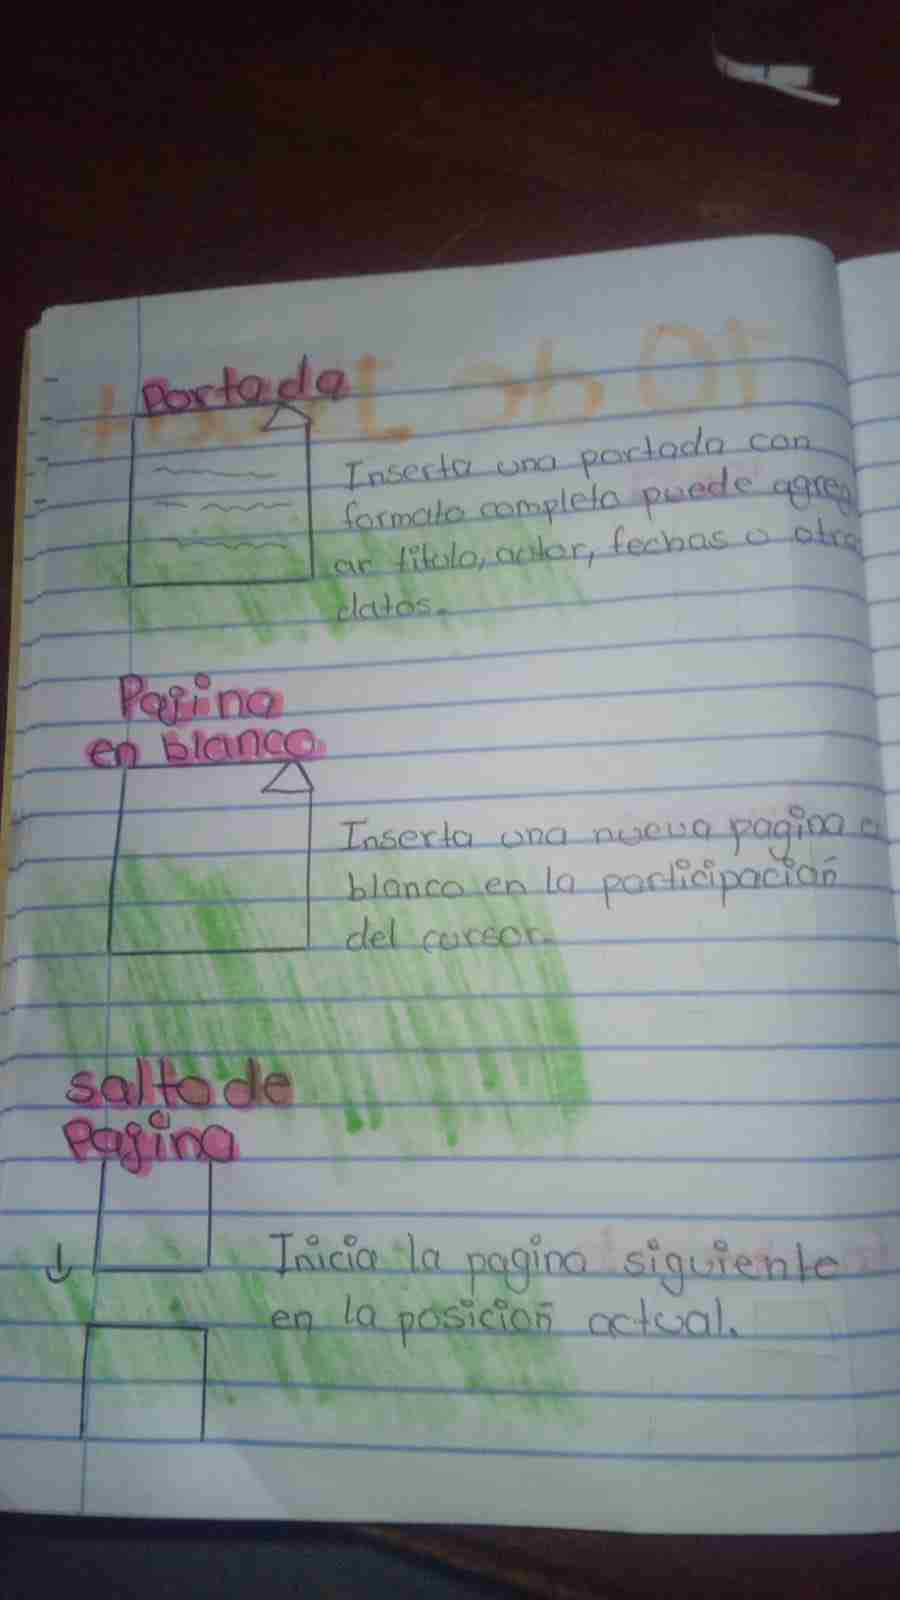 Portada
Inserta una portada con
formato completo puede agreg
ar titulo, autor, fechas o otro
datos.
Pagina
en blanco
Inserta una nueva pagina e
blanco en la participacion
del cursor.
salto de
Pagina
Inicia la pagina siguiente
en la posicion actual.